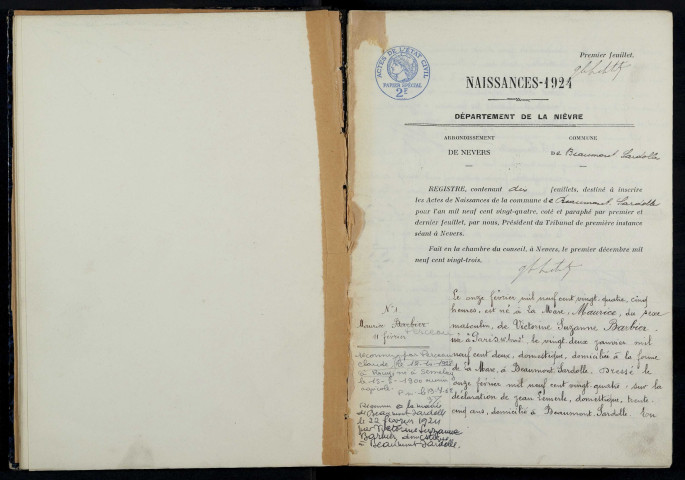 Premier feuillet.
ACTES DE L'ÉTAT CIVIL
PAPIER SPÉCIAL
2F
NAISSANCES-1924
DÉPARTEMENT DE LA NIÈVRE
ARRONDISSEMENT
DE NEVERS
COMMUNE
DE Beaumont Sardolles
REGISTRE, contenant dix feuillets, destiné à inscrire
les Actes de Naissances de la commune de Beaumont Sardolles
pour l'an mil neuf cent vingt-quatre, coté et paraphé par premier et
dernier feuillet, par nous, Président du Tribunal de première instance
séant à Nevers.
Fait en la chambre du conseil, à Nevers, le premier décembre mil
neuf cent vingt-trois.
N° 1
Maurice Barbier
11 février
reconnu par
le 15-
à
le 13-5-1900
agricole.
Reconnu à la mairie
de Beaumont Sardolles
le 22 février 1924
par Victorine Suzanne
Barbier domestique
à Beaumont Sardolles.
Le onze février mil neuf cent vingt quatre, cinq
heures, est né à la Mare, Maurice, du sexe
masculin, de Victorine Suzanne Barbier,
née à Paris, le vingt deux janvier mil
neuf cent deux, domestique, domiciliée à la ferme
de la Mare, à Beaumont Sardolles. Dressé le
onze février mil neuf cent vingt quatre sur la
déclaration de Jean domestique, trente
cinq ans, domicilié à Beaumont Sardolles. En